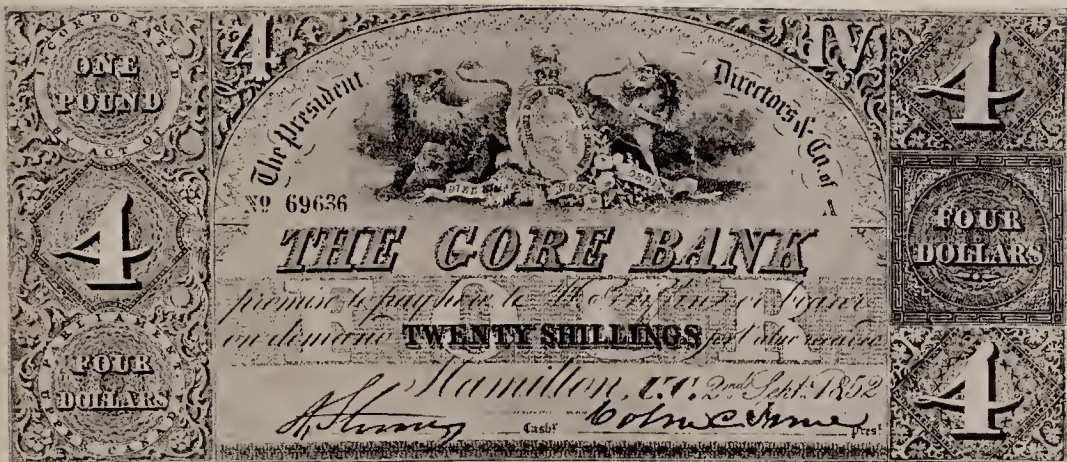 ONE
POUND
4
FOUR
DOLLARS
4
IV
The President Directors & Co. of
No 69636 A
THE GORE BANK
FOUR
promise to pay
on demand TWENTY SHILLINGS
Hamilton, 2nd Sept. 1852
Cashr Colin C Ferrie Prest
4
FOUR
DOLLARS
4